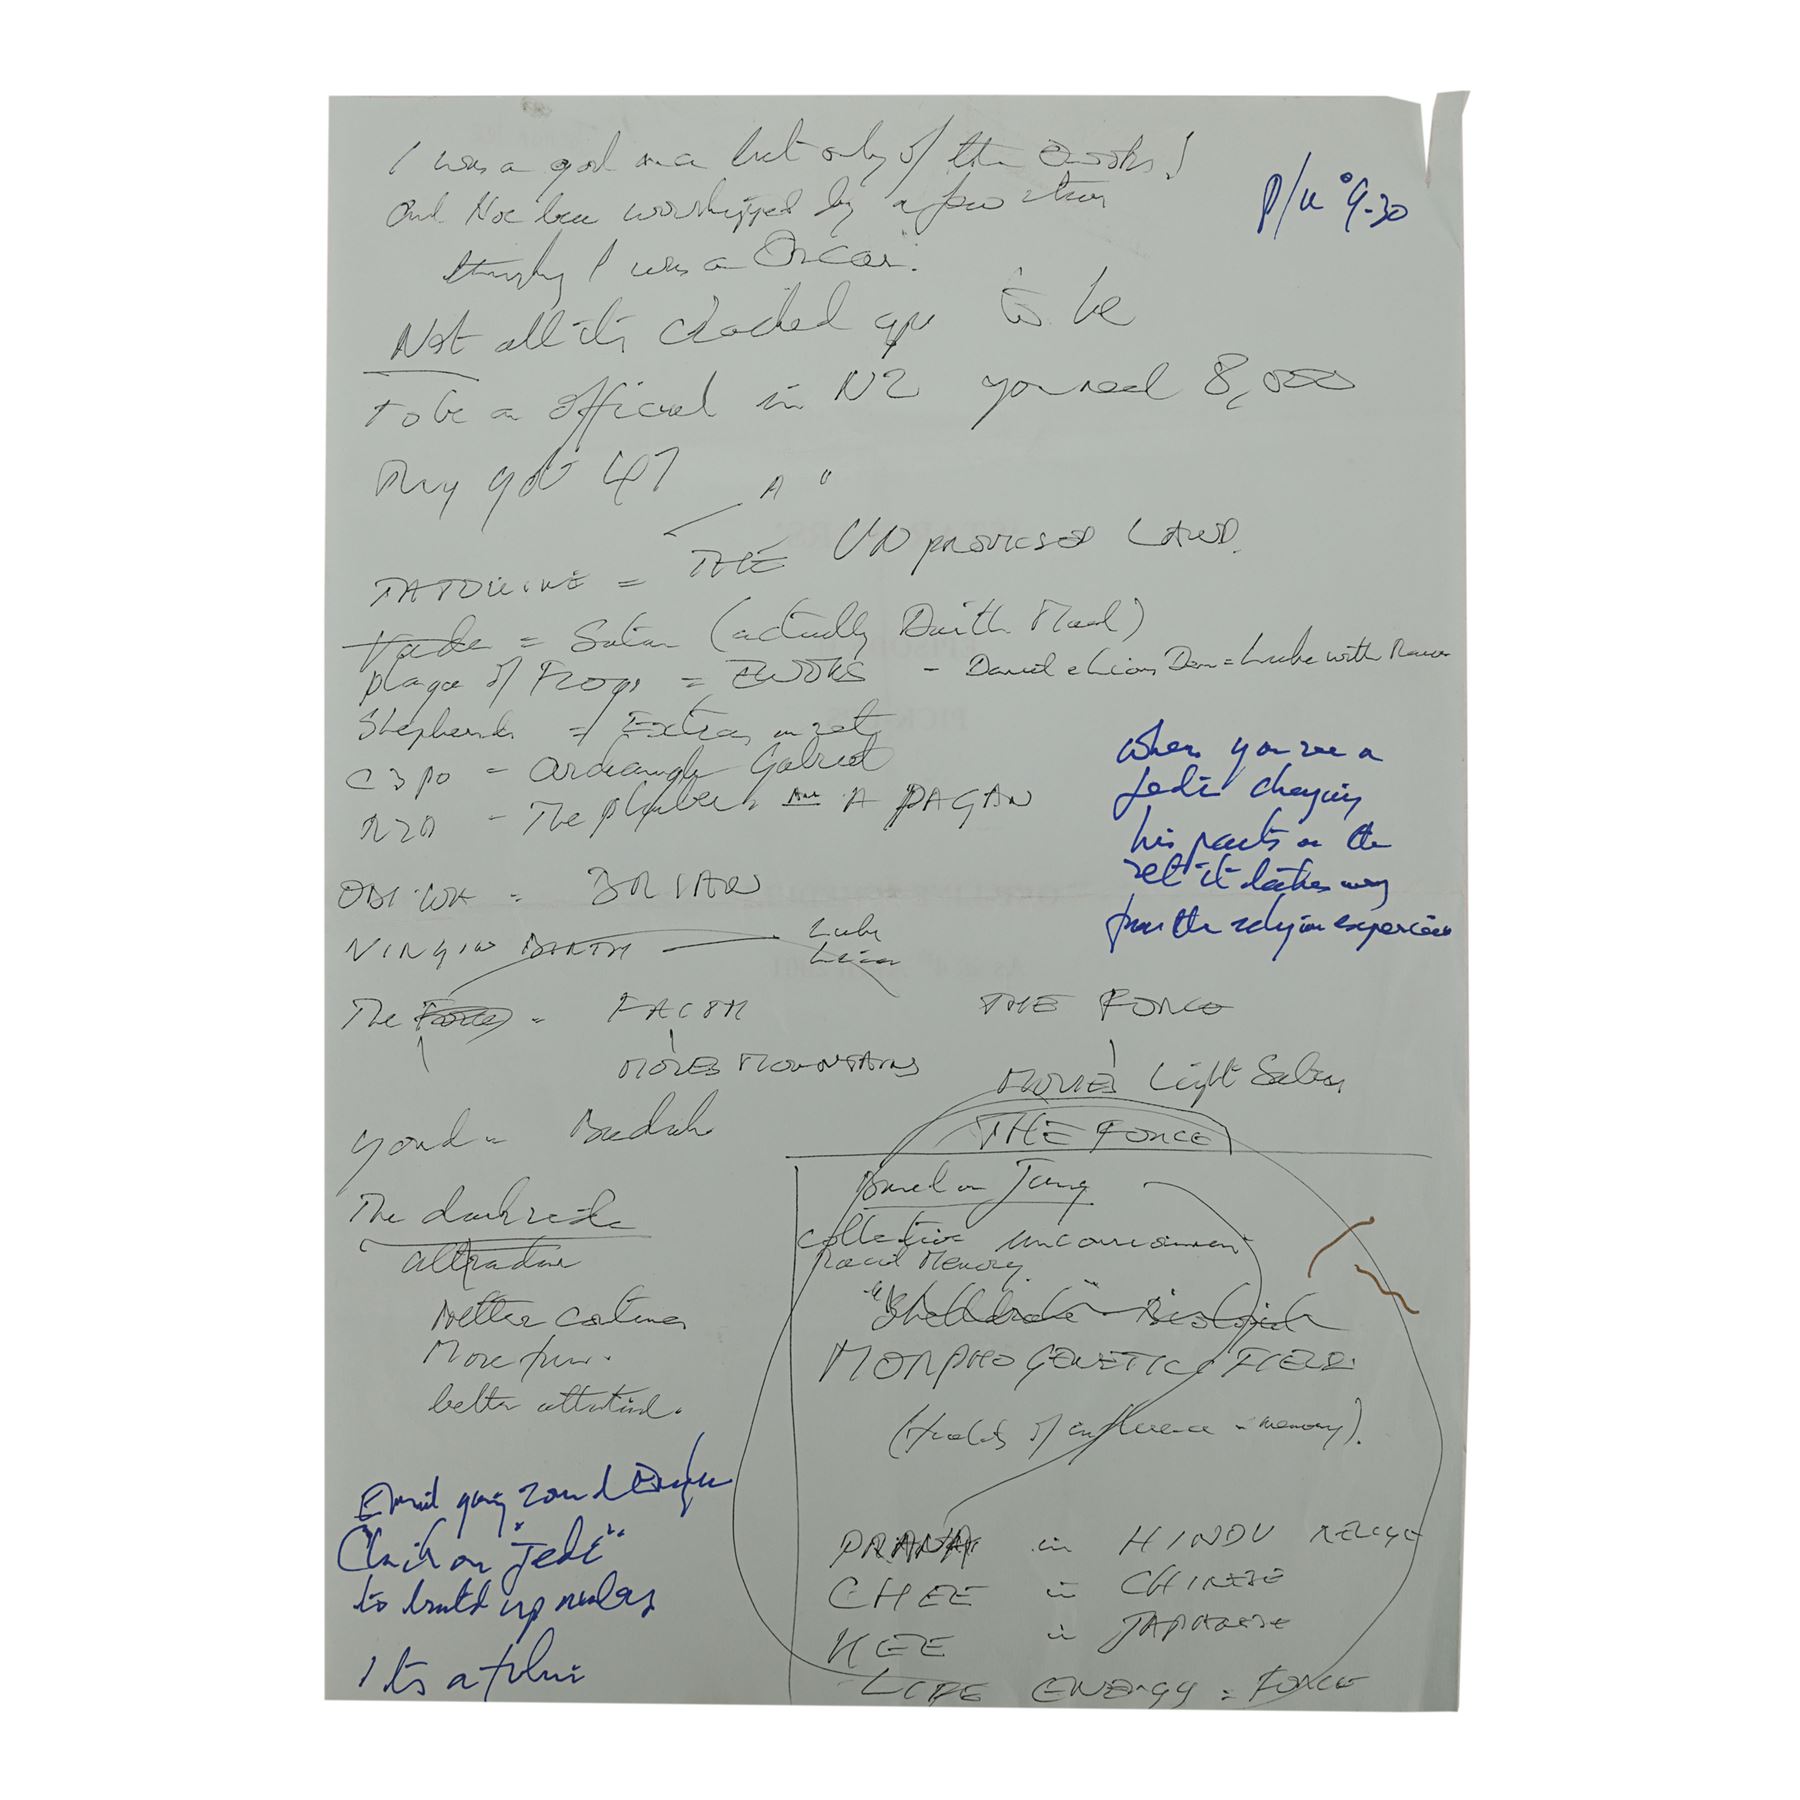 I was a god once but only of the Ewoks!
P/U 9-30
and Not been worshipped by a few
thinking I was an Oscar.
Not all it's cracked up to be
To be an official in NZ you need 8,000
They got 47
A "
TATOUINE = THE UNPROMISED LAND.
Vader = Satan (actually Darth Maul)
plague of Frogs = EWOKS - Daniel & Lions Den = Luke with Rancor
Shepherds = Extras on set
C3PO = Archangel Gabriel
R2D - The plumber A PAGAN
when you see a
Jedi changing
his pants on the
set it takes away
from the religion experience
OBI WA = BRIAN
VIRGIN BIRTH — Luke
Leia
The Force = FAITH
THE FORCE
MOVES MOUNTAINS
MOVES Light Sabers
Yoda = Buddah
THE FORCE
The dark side
Based on Jung
attractive
collective unconscious
racial Memory
Better costumes
"Sheldrake" Biologist
More fun.
MORPHOGENETIC FIELD.
better attitude.
(fields of influence = memory).
Email going round
to build up numbers
Its a film
PRANA in HINDU RELIGE
CHEE in CHINESE
KEE in JAPANESE
LIFE ENERGY = FORCE